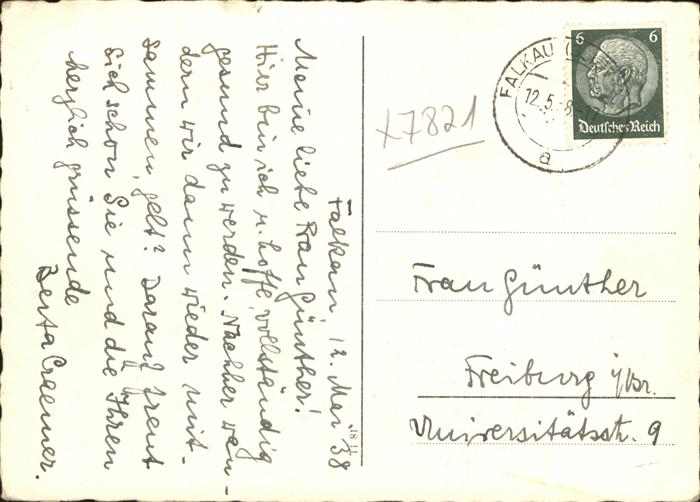 Falkau 12. Mai 38
Meine liebe Frau Günther!
Hier bin ich u. hoffe, vollständig
gesund zu werden. Nachher wan-
dern wir dann wieder mit-
sammen, gelt? Darauf freut
sich schon Sie und die Ihren
herzlich grüssende
Berta Craemer.
x7821
FALKAU
12.5.38
a
6 6
Deutsches Reich
Frau Günther
Freiburg i/Br.
Universitätsstr. 9